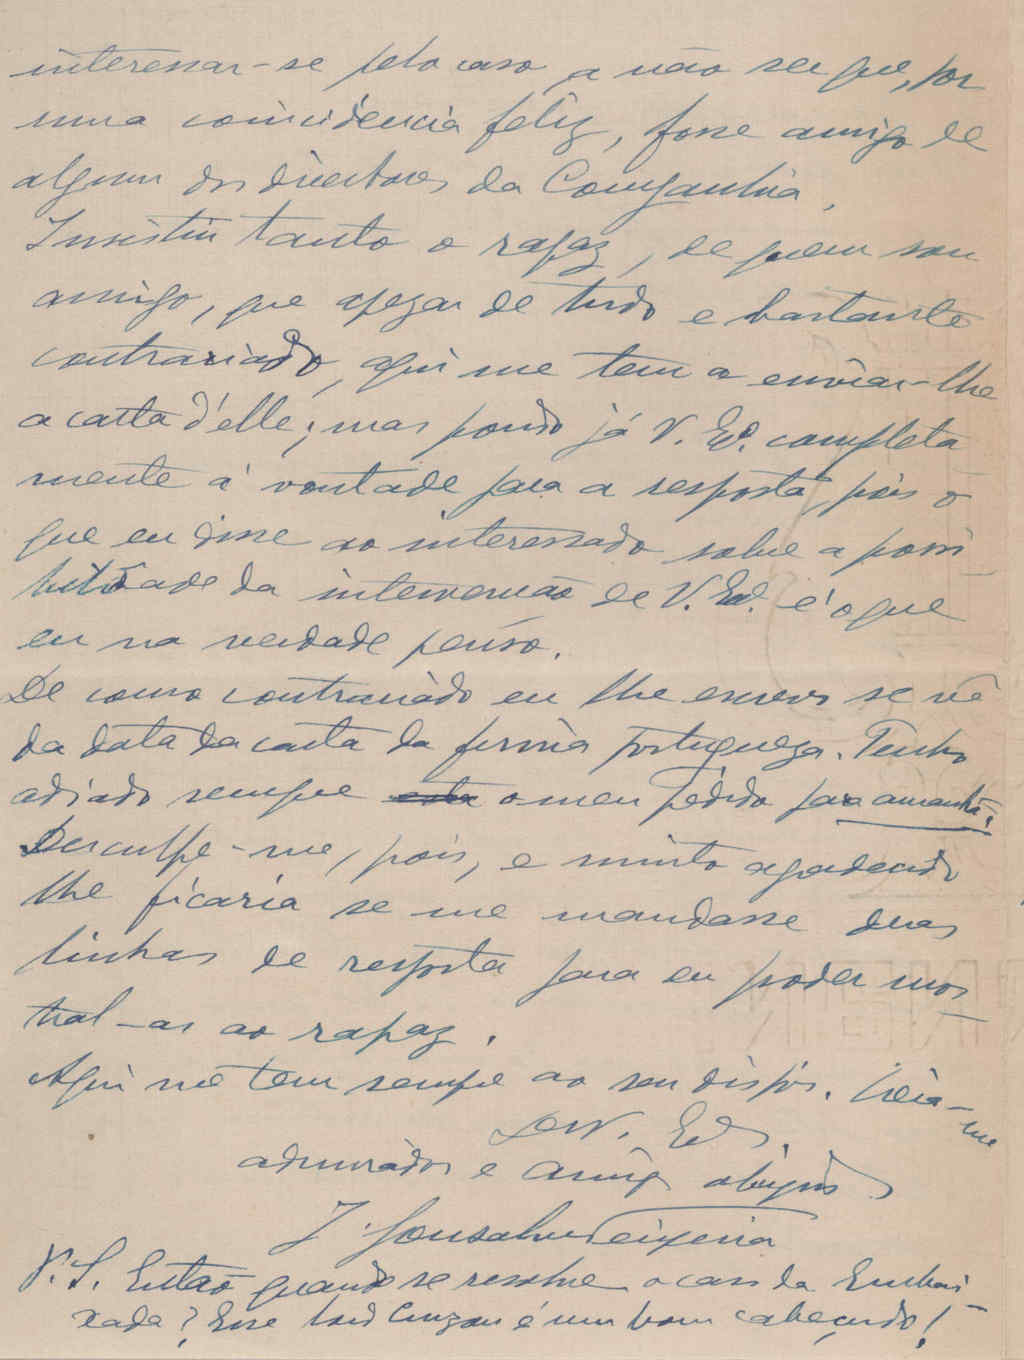 interessar-se pelo caso, a não ser que, por
uma coincidencia feliz, fosse amigo de
algum dos directores da Companhia.
Insistiu tanto o rapaz, de quem sou
amigo, que apezar de tudo e bastante
contrariado, aqui me tem a enviar-lhe
a carta d'elle; mas pondo já V. Exª. completa
mente á vontade para a resposta, pois o
que eu disse ao interessado sobre a possi
bilidade da intervenção de V. Exª. é o que
eu na verdade penso.
De como contrariado eu lhe escrevo se vê
da data da carta da firma portugueza. Tenho
adiado sempre o meu pedido para amanhã.
Desculpe-me, pois, e muito agradecido
lhe ficaria se me mandasse duas
linhas de resposta para eu poder mos
tral-as ao rapaz.
Aqui me tem sempre ao seu dispôr. Creia-me
De V. Exª.
admirador e amigo obrigado
J. Gonsalves Teixeira
P.S. Então quando se resolve o caso da Embai
xada? Esse lord Curzon é um bom cabeçudo!